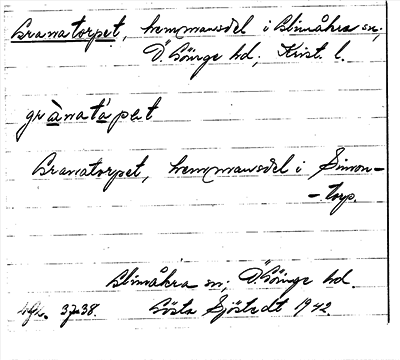 Granatorpet, hemmansdel i Glimåkra sn;
Ö. Göinge hd, Krist. l.
grànatápet
Granatorpet, hemmansdel i Simon-
-torp.
Glimåkra sn; Ö. Göinge hd.
37-38. Gösta Sjöstedt 1942